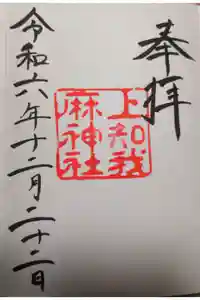 奉拝
上知我
麻神社
令和六年十二月二十二日